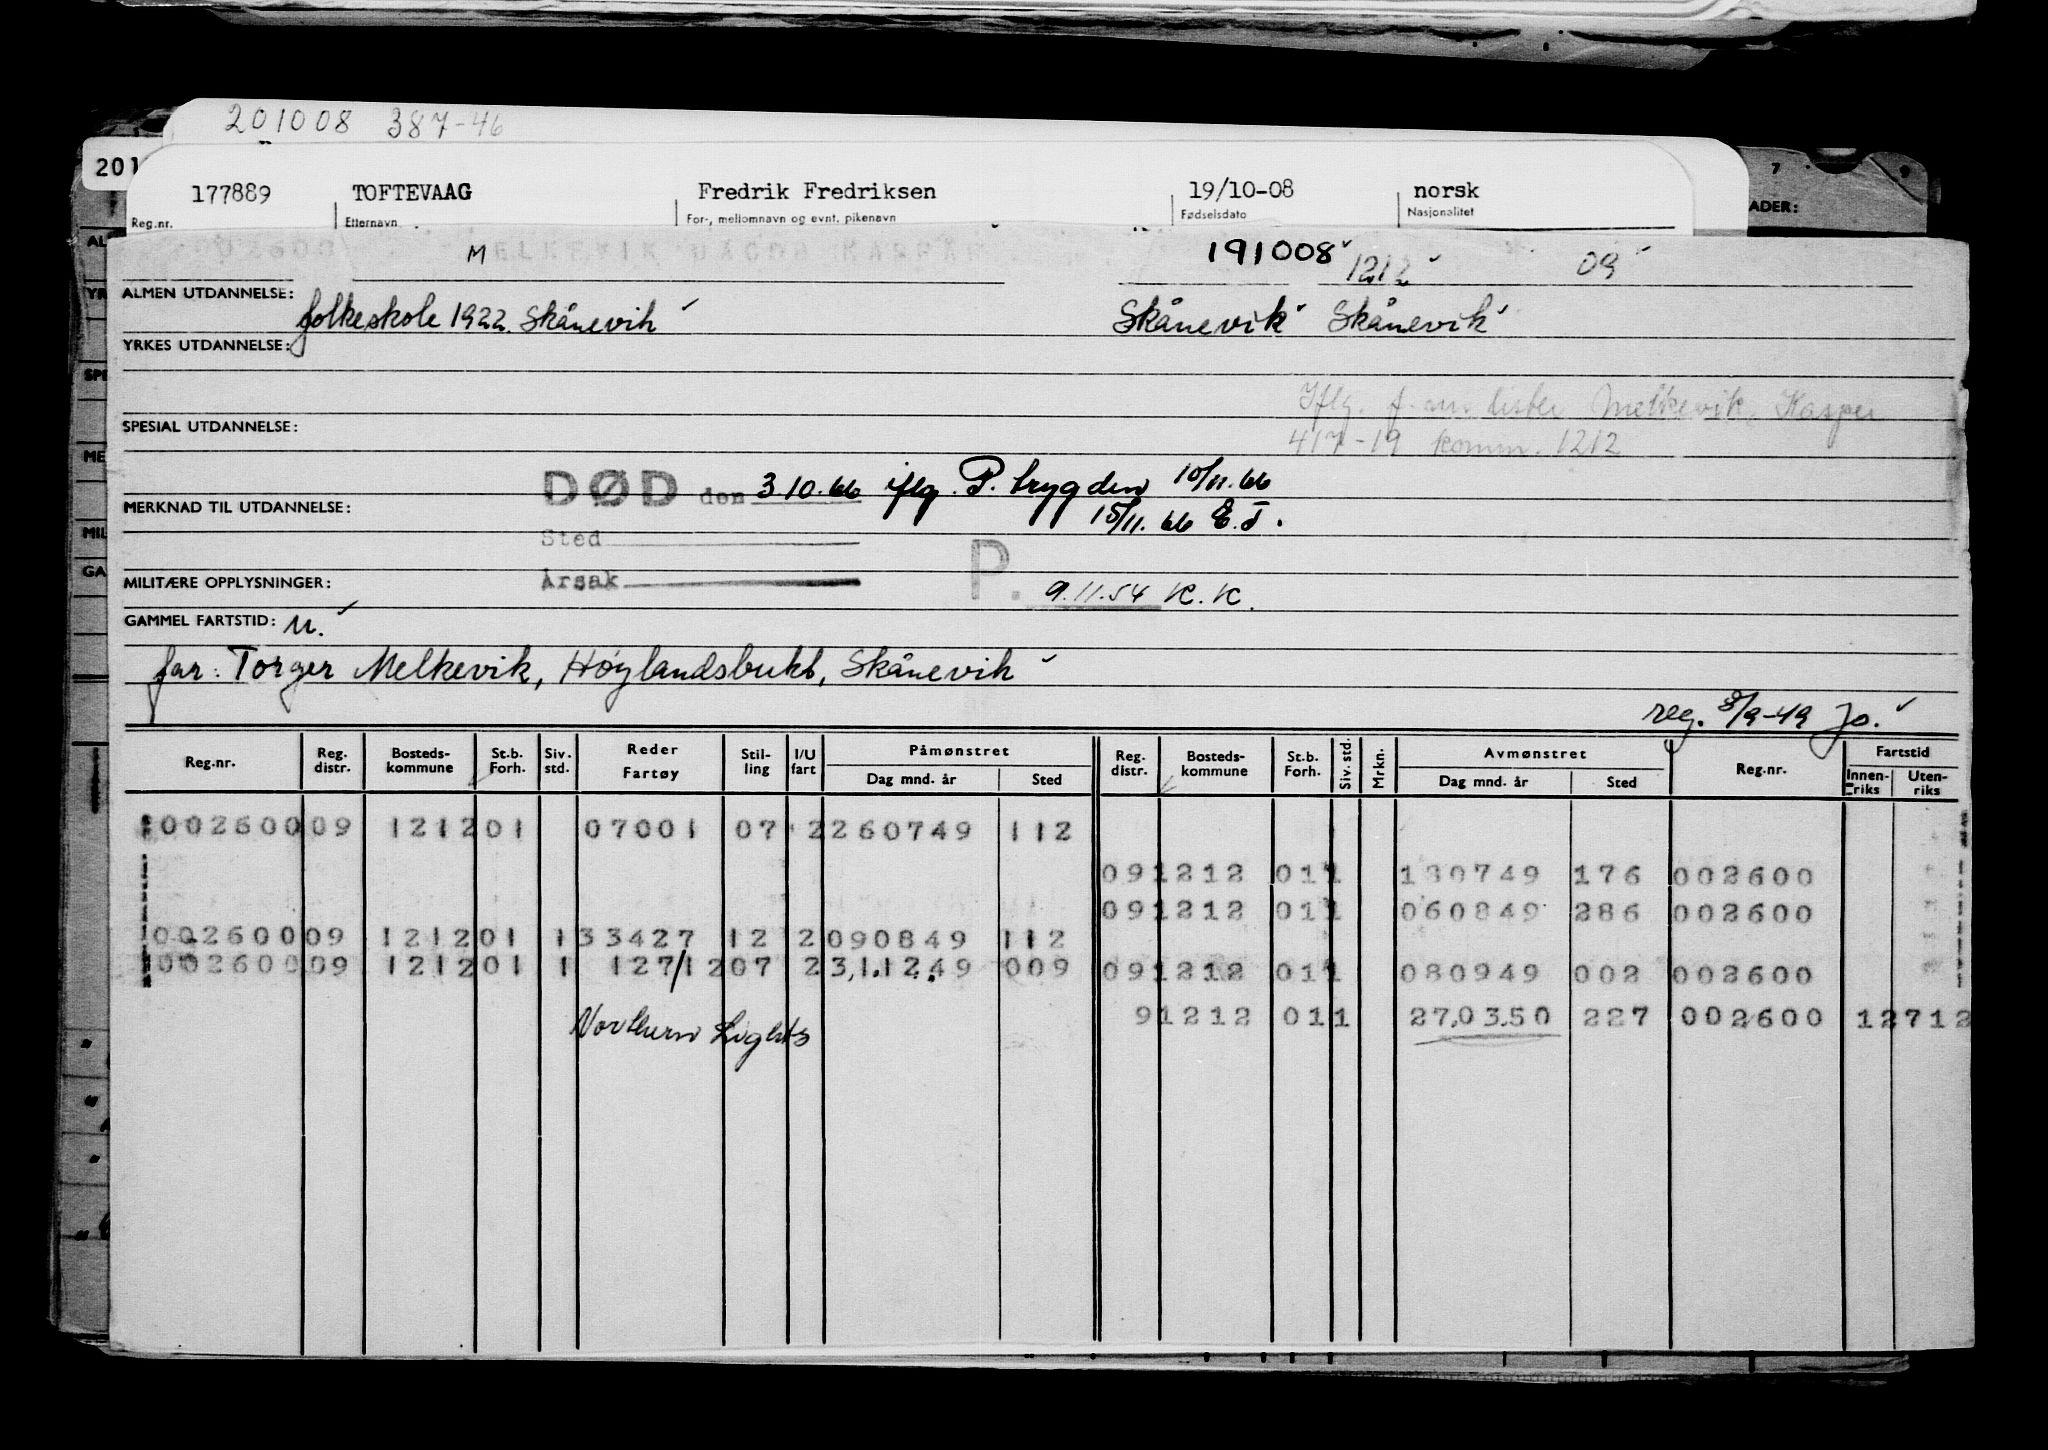 201008 387-46
201
177889 TOFTEVAAG Fredrik Fredriksen 19/10-08 norsk
Reg.nr. Etternavn For-, mellomnavn og evnt. pikenavn Fødselsdato Nasjonalitet
ADER:
002600 MELKEVIK JACOB KASPAR
M 191008 1212 09
ALMEN UTDANNELSE: folkeskole 1922 Skånevik Skånevik Skånevik
YRKES UTDANNELSE:
Iflg. lister Melkevik, Kasper
SPESIAL UTDANNELSE: 417-19 komm. 1212
DØD den 3.10.66 iflg. P. trygden 10/11.66
MERKNAD TIL UTDANNELSE: 15/11.66 E.T.
Sted
MILITÆRE OPPLYSNINGER: Årsak P. 9.11.54 K.K.
GAMMEL FARTSTID: u.
far: Torger Melkevik, Høylandsbukt, Skånevik
reg. 8/9-49 Jo.
Reg.nr. Reg. distr. Bosteds-kommune St.b. Forh. Siv. std. Reder Fartøy Stil-ling I/U fart Påmønstret Dag mnd. år Sted Reg. distr. Bosteds-kommune St.b. Forh. Siv. std. Mrkn. Avmønstret Dag mnd. år Sted Reg.nr. Fartstid Innen-riks Uten-riks
002600 09 1212 01 07001 07 2 260749 112
09 1212 01 1 180749 176 002600
09 1212 01 1 060849 286 002600
002600 09 1212 01 1 33427 12 2 090849 112
002600 09 1212 01 1 127/12 07 2 3,1.12.49 009 09 1212 01 1 080949 002 002600
Northern Lights 9 1212 01 1 27,03.50 227 002600 12712